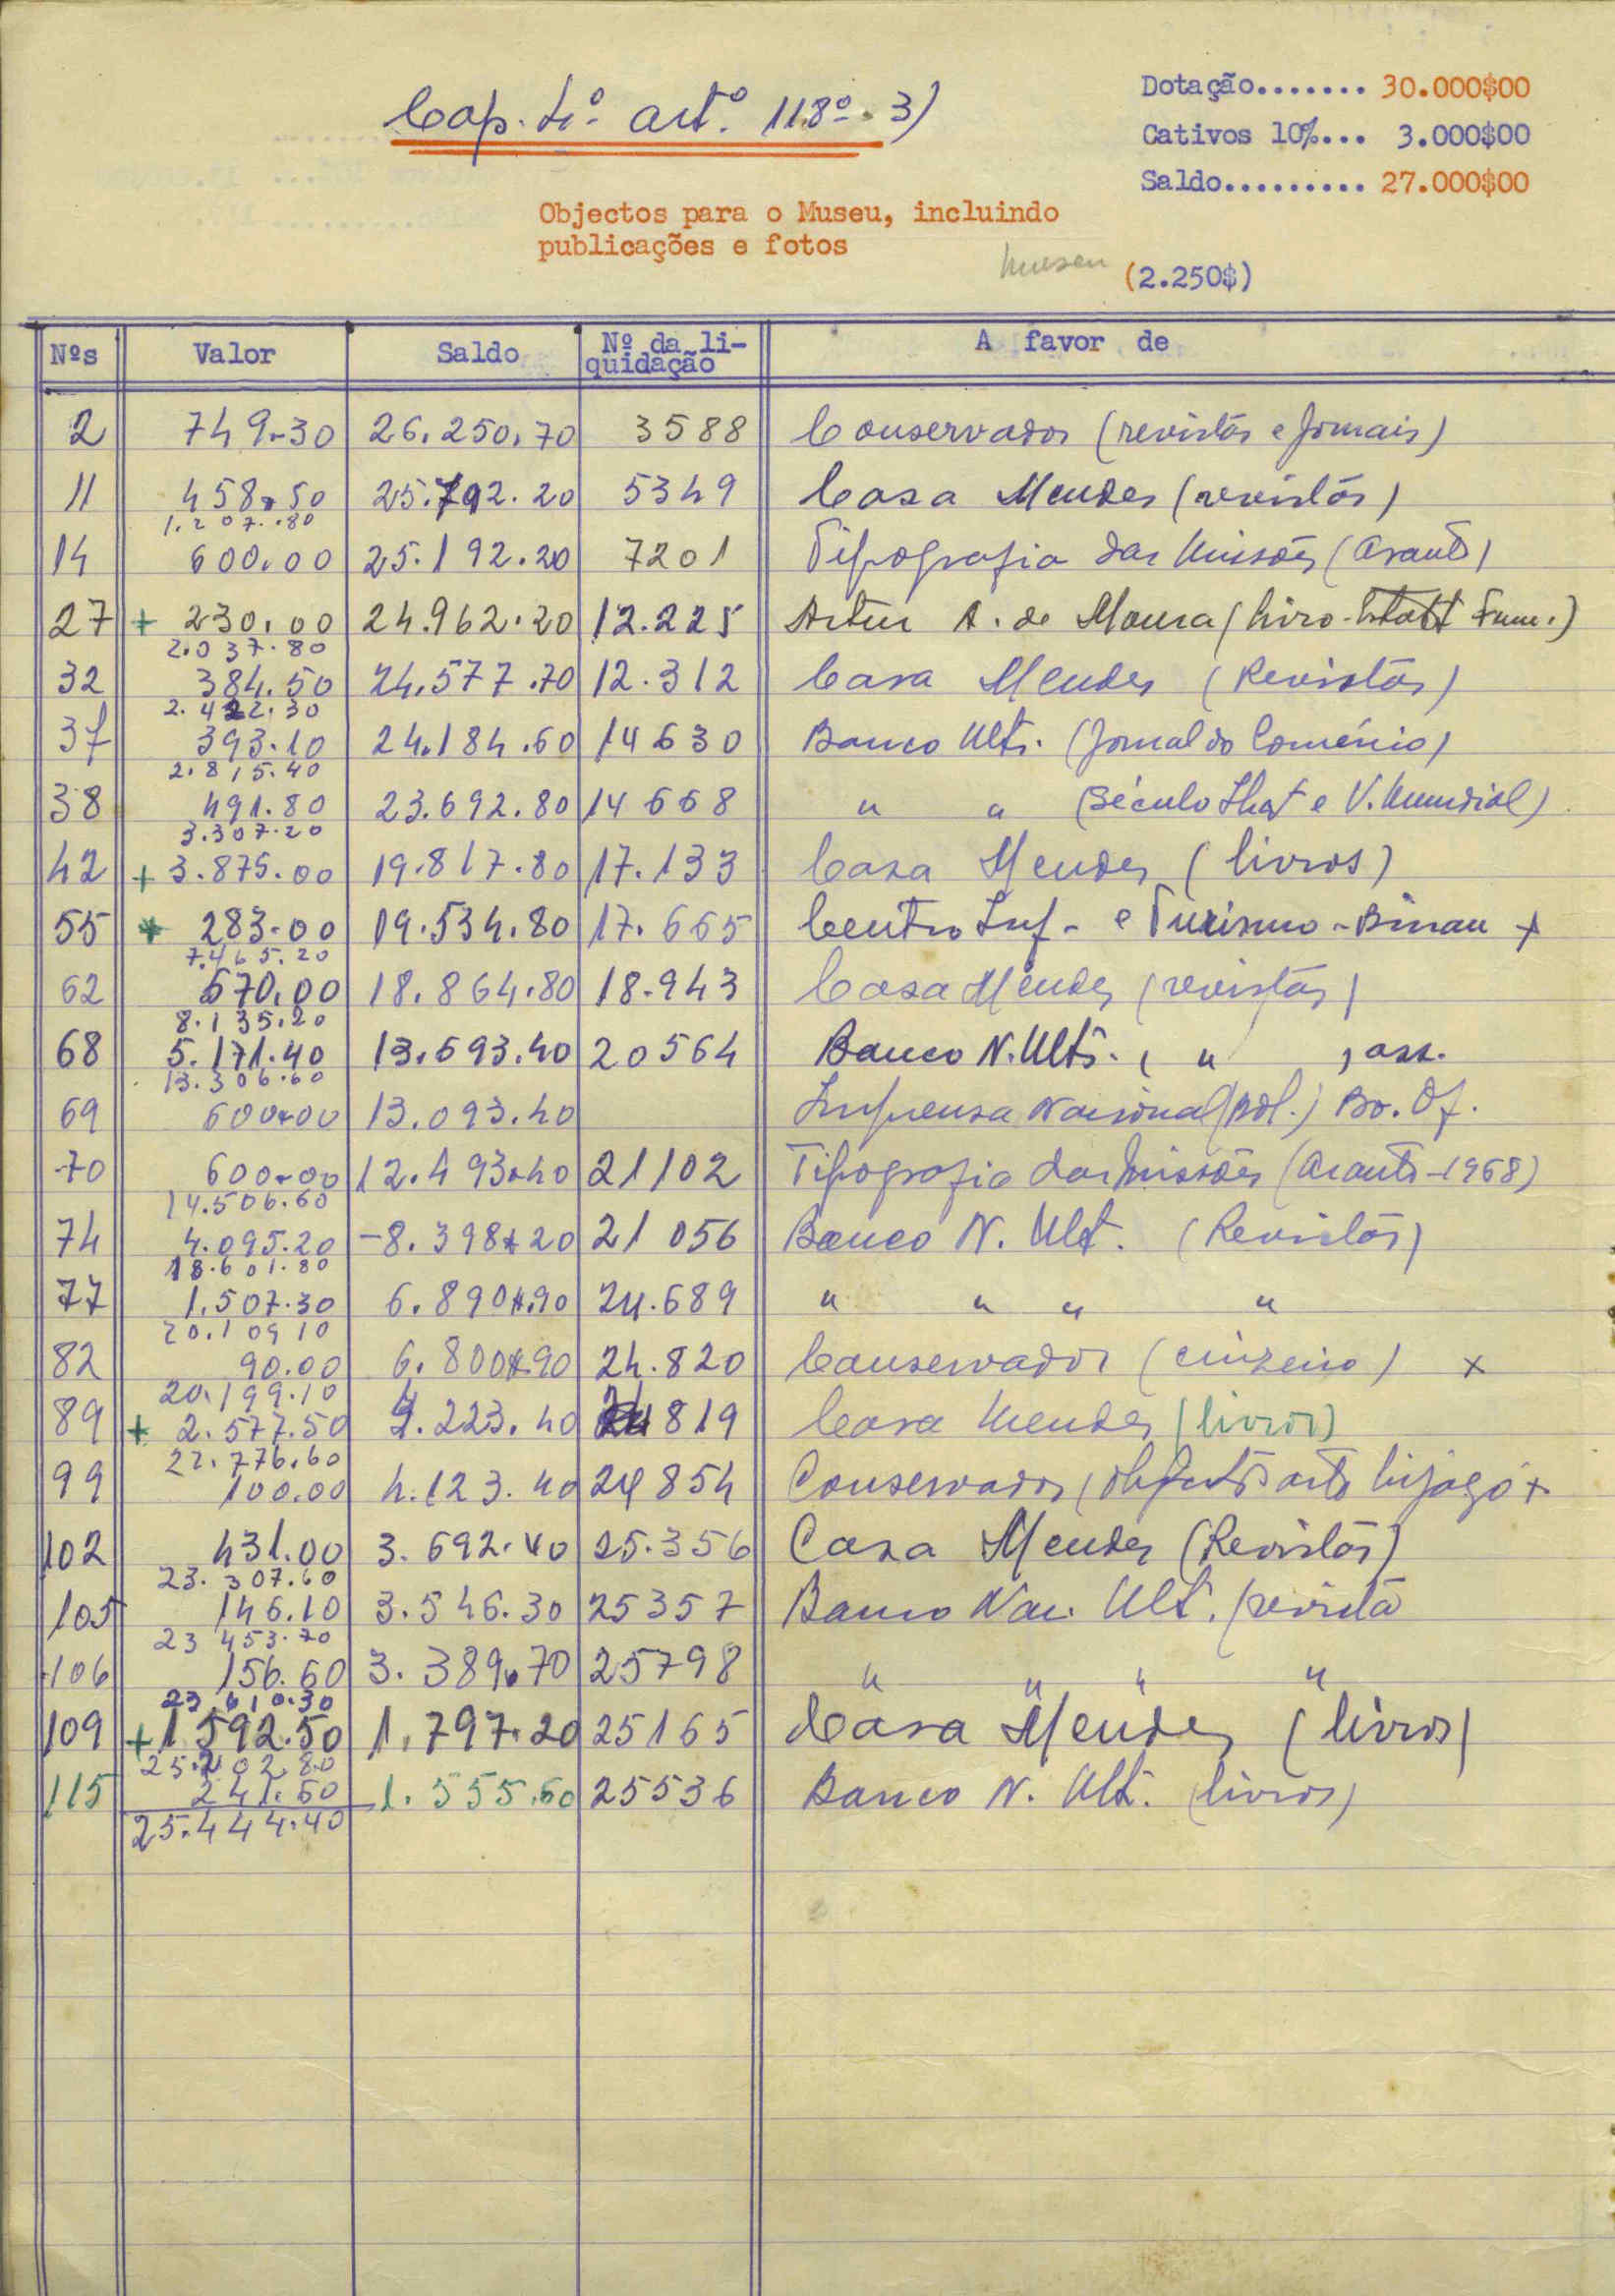 Cap. 4º art.º 118º. 3)
Dotação....... 30.000$00
Cativos 10%... 3.000$00
Saldo......... 27.000$00
Objectos para o Museu, incluindo
publicações e fotos
Museu (2.250$)
Nºs Valor Saldo Nº da li-
quidação A favor de
2 749.30 26.250.70 3588 Conservador (revistas e Jornais)
11 458.50 25.792.20 5349 Casa Mendes (revistas)
1.207.80
14 600.00 25.192.20 7201 Tipografia das Missões (Arauto)
27 + 230.00 24.962.20 12.225 Artur A. de Moura (livro
2.037.80
32 384.50 24.577.70 12.312 Casa Mendes (Revistas)
2.422.30
37 393.10 24.184.60 14630 Banco Ult. (Jornal do Comércio)
2.815.40
38 491.80 23.692.80 14668 " " (Século Ilust e V. Mundial)
3.307.20
42 + 3.875.00 19.817.80 17.133 Casa Mendes (livros)
55 + 283.00 19.534.80 17.665 Centro Inf. e Turismo - Bissau +
7.465.20
62 670.00 18.864.80 18.943 Casa Mendes (revistas)
8.135.20
68 5.171.40 13.693.40 20564 Banco N. Ult. ( " ) ass.
13.306.60
69 600.00 13.093.40 Imprensa Nacional (Bol.) Bo. Of.
70 600.00 12.493.40 21102 Tipografia das Missões (Arauto - 1968)
14.506.60
74 4.095.20 -8.398.20 21056 Banco N. Ult. (Revistas)
18.601.80
77 1.507.30 6.890.90 24.689 " " " "
20.109 10
82 90.00 6.800.90 24.820 Conservador (cinzeiro) x
20.199.10
89 + 2.577.50 4.223.40 24819 Casa Mendes (livros)
22.776.60
99 100.00 4.123.40 24854 Conservador (objectos arte bijagó +
102 431.00 3.692.40 25.356 Casa Mendes (Revistas)
23.307.60
105 146.10 3.546.30 25357 Banco Nac. Ult. (revista
23 453.70
106 156.60 3.389.70 25798 " " " "
23 610.30
109 + 1 592.50 1.797.20 25165 Casa Mendes (livros)
25.202 80
115 241.60 1.555.60 25536 Banco N. Ult. (livros)
25.444.40